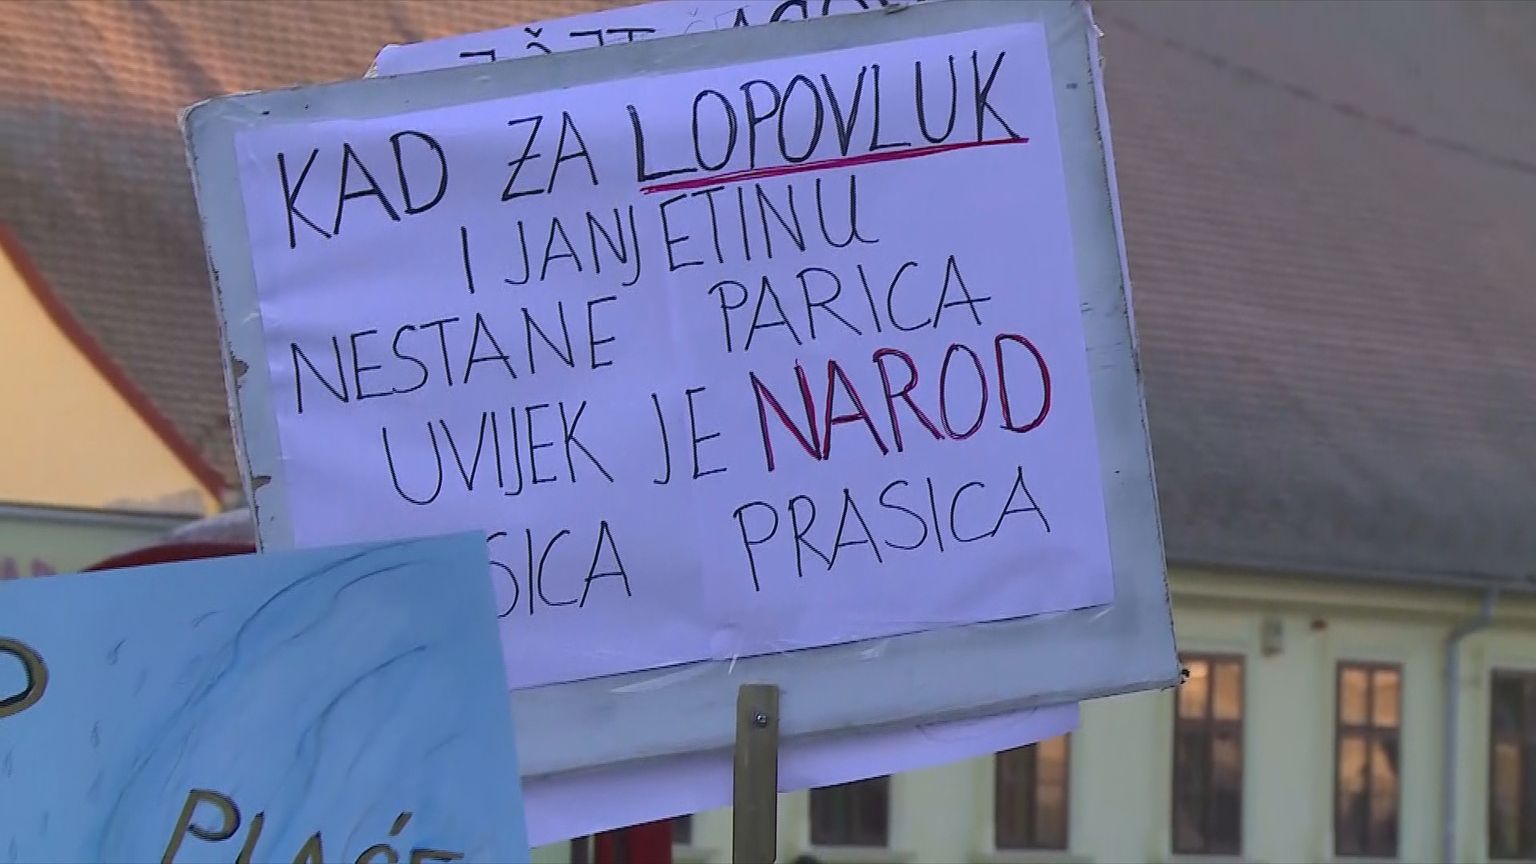 KAD ZA LOPOVLUK
I JANJETINU
NESTANE PARICA
UVIJEK JE NAROD
SICA PRASICA
PLAĆE